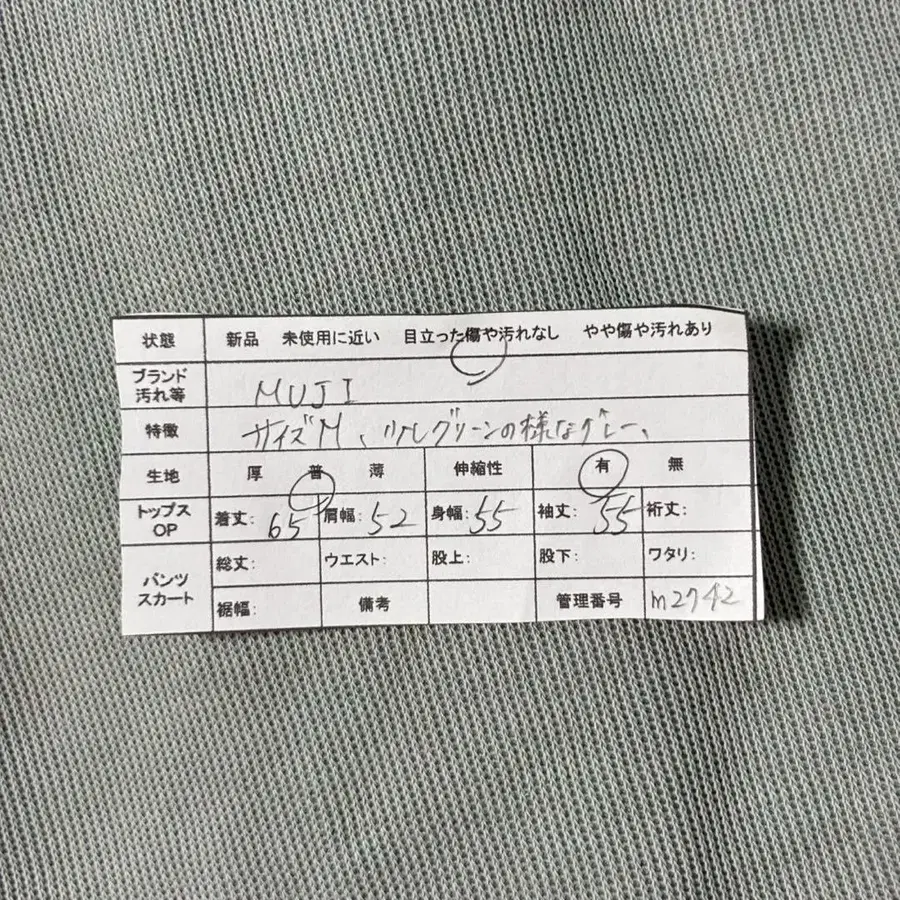 状態 新品 未使用に近い 目立った傷や汚れなし やや傷や汚れあり
ブランド
汚れ等 MUJI
特徴 サイズM、グリーンの様なグレー、
生地 厚 普 薄 伸縮性 有 無
トップス
OP 着丈: 65 肩幅: 52 身幅: 55 袖丈: 55 裄丈:
パンツ
スカート 総丈: ウエスト: 股上: 股下: ワタリ:
裾幅: 備考 管理番号 m2742